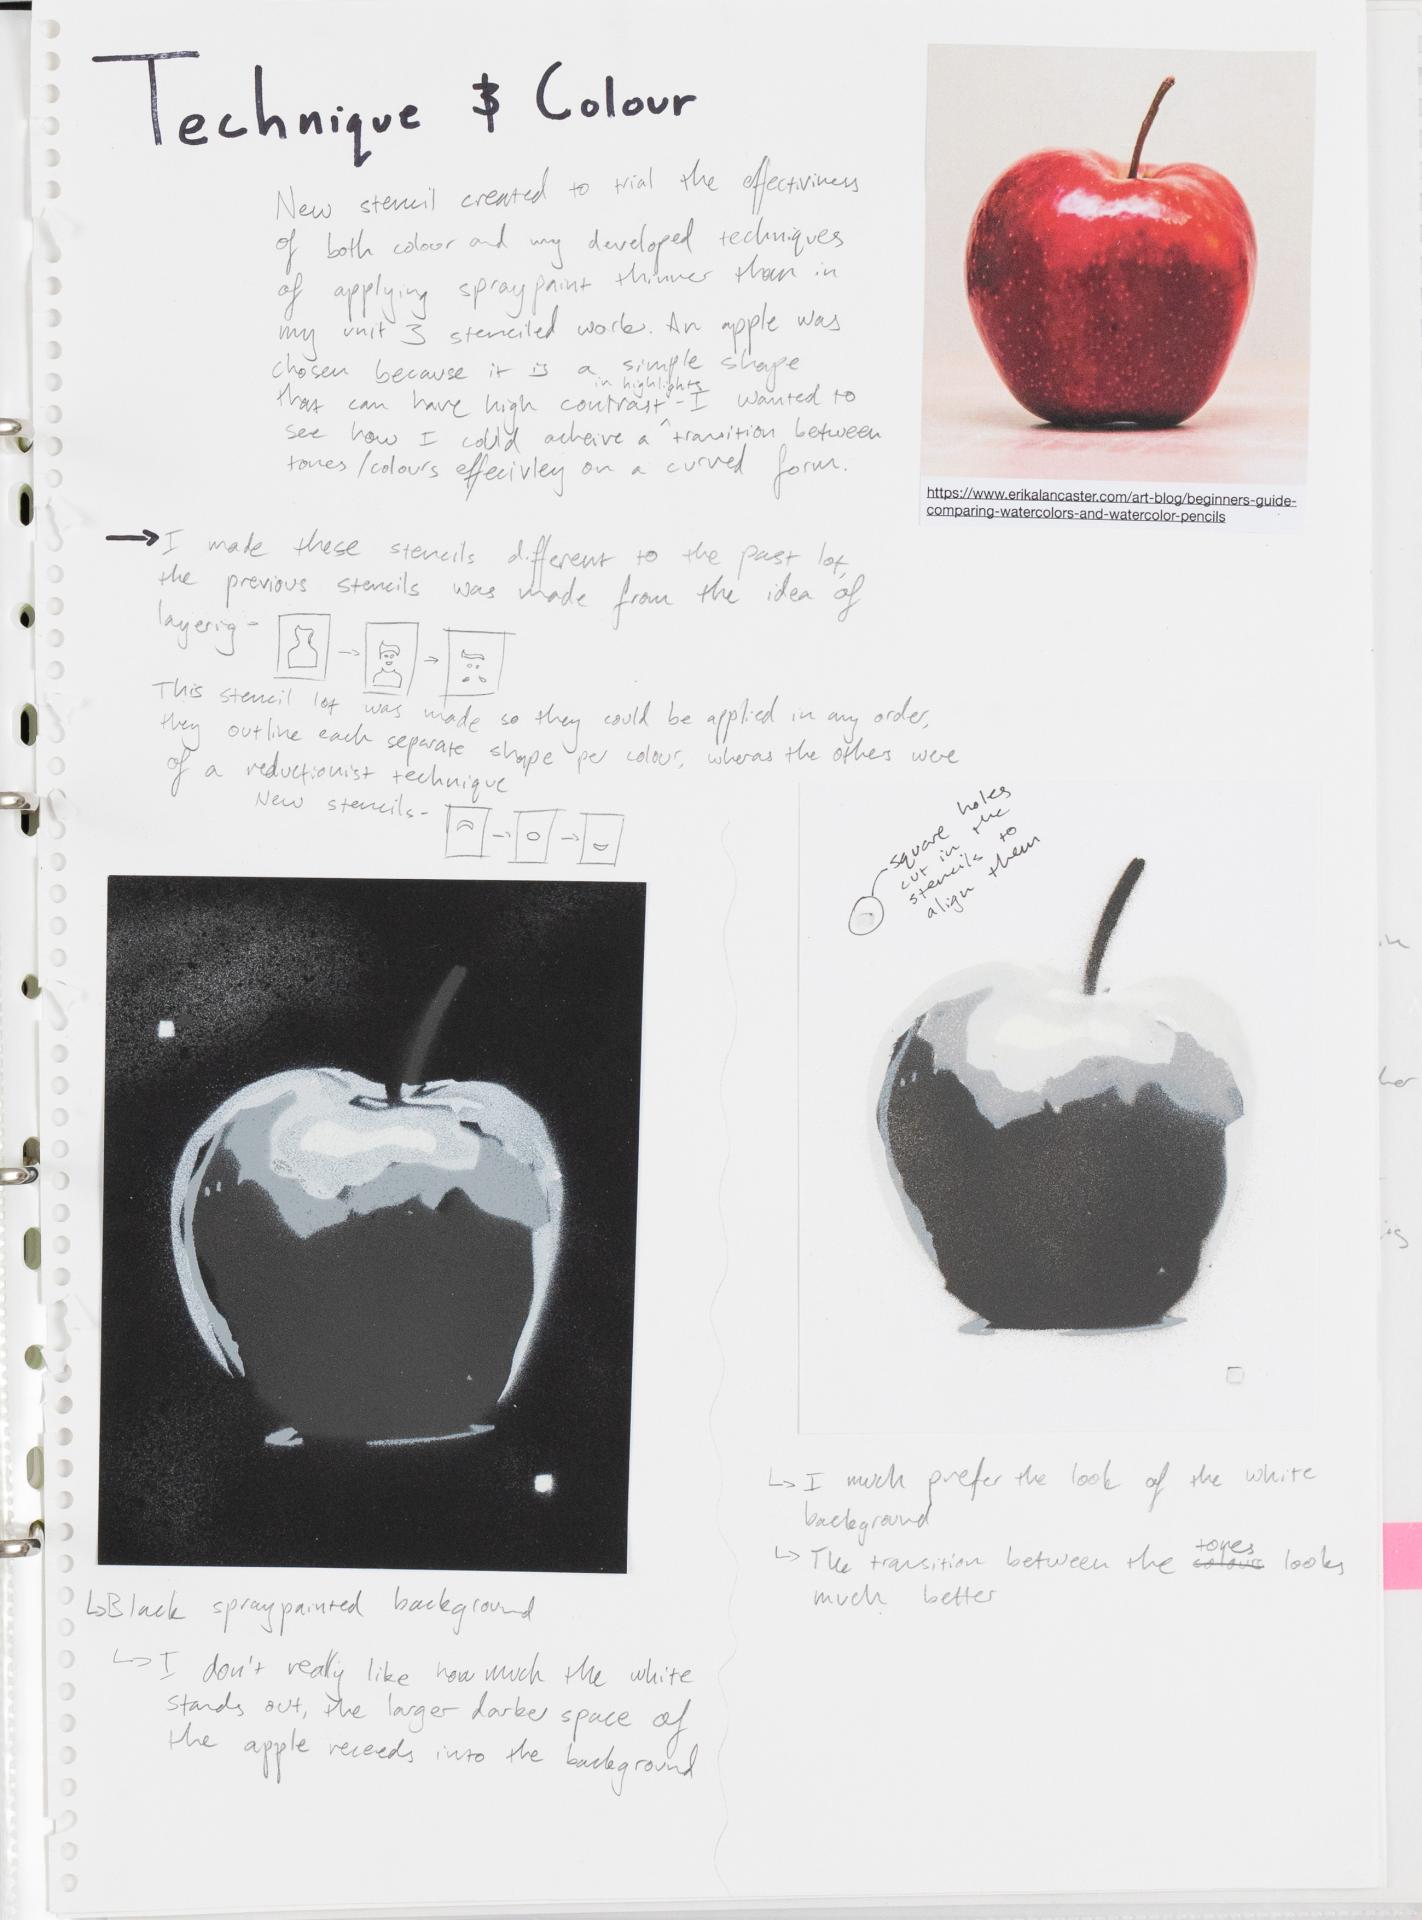 Technique & Colour
New stencil created to trial the effectiviness
of both colour and my developed techniques
of applying spraypaint thinner than in
my unit 3 stenciled work. An apple was
chosen because it is a simple shape
in highlights
that can have high contrast - I wanted to
see how I could acheive a ^ transition between
tones/colours effecivley on a curved form.
https://www.erikalancaster.com/art-blog/beginners-guide-
comparing-watercolors-and-watercolor-pencils
→ I made these stencils different to the past lot,
the previous stencils was made from the idea of
layerig -
This stencil lot was made so they could be applied in any order,
they outline each separate shape per colour, wheras the others were
of a reductionist technique
New stencils -
square holes
cut in the
stencils to
align them
↳ Black spraypainted background
↳ I don't really like how much the white
stands out, the larger darker space of
the apple receeds into the background
↳ I much prefer the look of the white
background
↳ The transition between the colours tones looks
much better